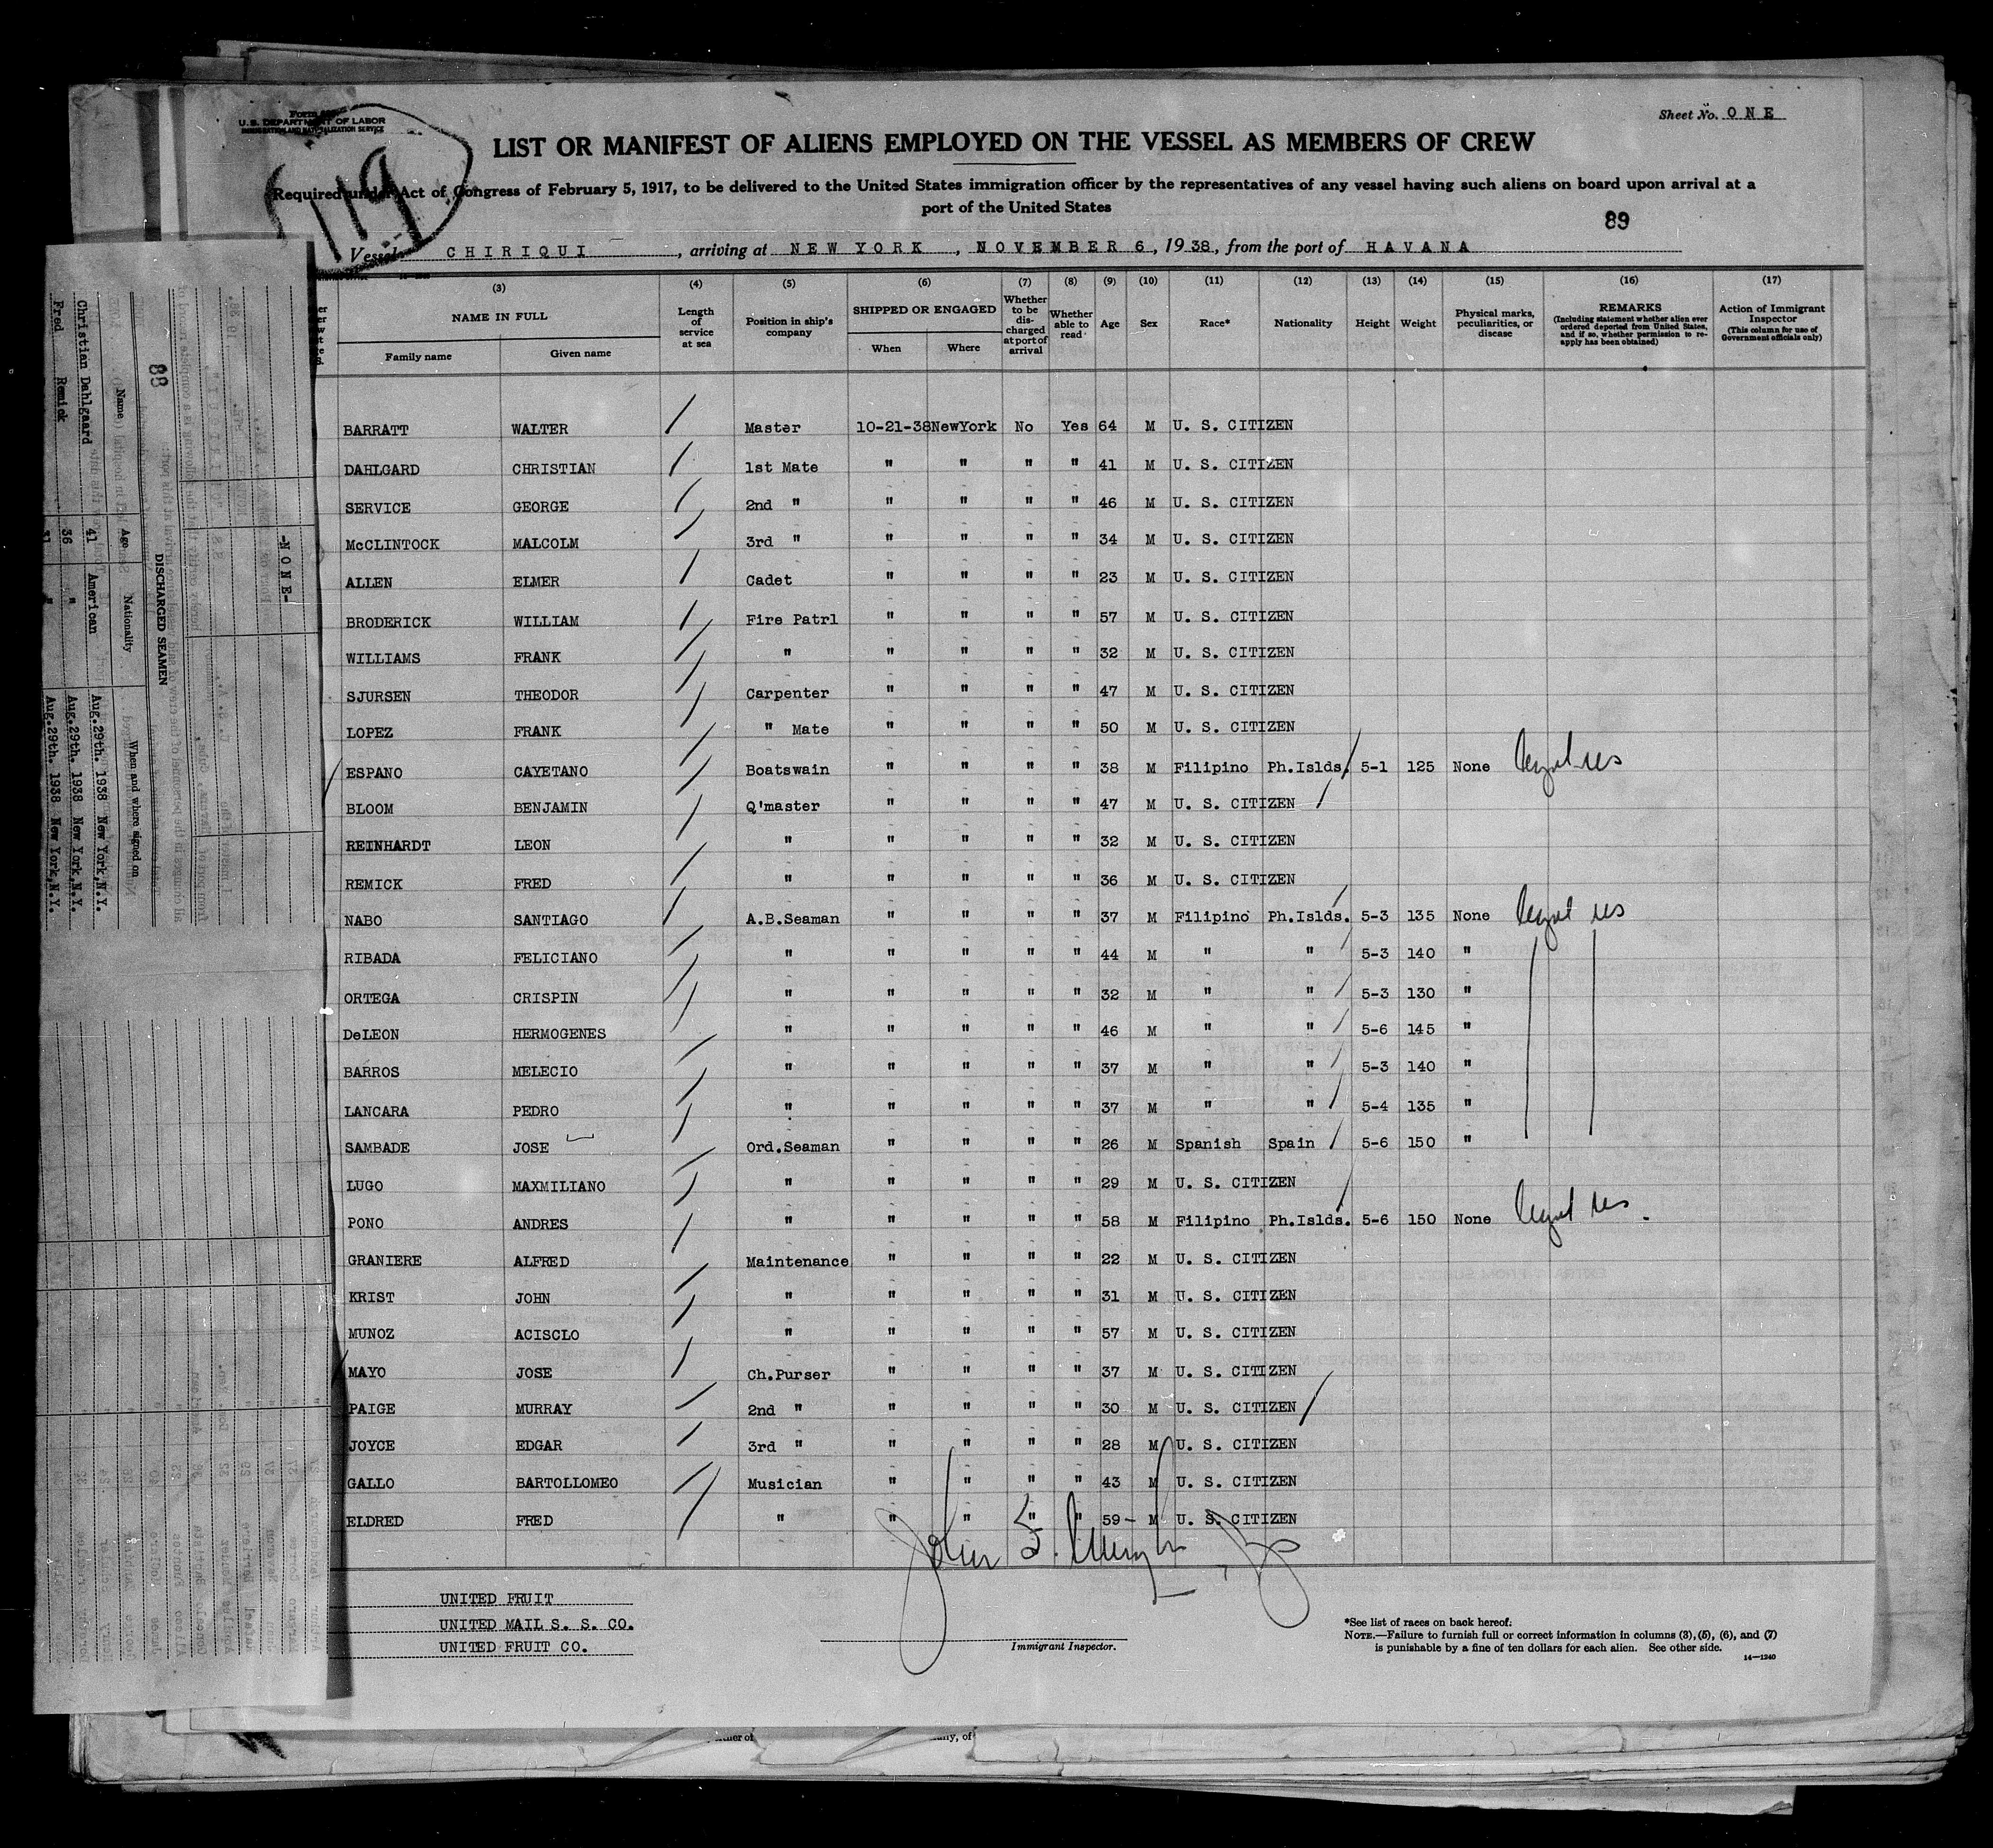 Form
U. S. DEPARTMENT OF LABOR
IMMIGRATION AND NATURALIZATION SERVICE
119
Sheet No. ONE
LIST OR MANIFEST OF ALIENS EMPLOYED ON THE VESSEL AS MEMBERS OF CREW
Required under Act of Congress of February 5, 1917, to be delivered to the United States immigration officer by the representatives of any vessel having such aliens on board upon arrival at a
port of the United States
89
Vessel CHIRIQUI, arriving at NEW YORK, NOVEMBER 6, 1938, from the port of HAVANA
(3) (4) (5) (6) (7) (8) (9) (10) (11) (12) (13) (14) (15) (16) (17)
NAME IN FULL
Family name Given name
Length of service at sea
Position in ship's company
SHIPPED OR ENGAGED
When Where
Whether to be discharged at port of arrival
Whether able to read
Age
Sex
Race*
Nationality
Height
Weight
Physical marks, peculiarities, or disease
REMARKS
(Including statement whether alien ever ordered deported from United States, and if so, whether permission to reapply has been obtained)
Action of Immigrant Inspector
(This column for use of Government officials only)
BARRATT WALTER Master 10-21-38 NewYork No Yes 64 M U. S. CITIZEN
DAHLGARD CHRISTIAN 1st Mate " " " " 41 M U. S. CITIZEN
SERVICE GEORGE 2nd " " " " " 46 M U. S. CITIZEN
McCLINTOCK MALCOLM 3rd " " " " " 34 M U. S. CITIZEN
ALLEN ELMER Cadet " " " " 23 M U. S. CITIZEN
BRODERICK WILLIAM Fire Patrl " " " " 57 M U. S. CITIZEN
WILLIAMS FRANK " " " " " 32 M U. S. CITIZEN
SJURSEN THEODOR Carpenter " " " " 47 M U. S. CITIZEN
LOPEZ FRANK " Mate " " " " 50 M U. S. CITIZEN
ESPANO CAYETANO Boatswain " " " " 38 M Filipino Ph.Islds. 5-1 125 None Legal res
BLOOM BENJAMIN Q'master " " " " 47 M U. S. CITIZEN
REINHARDT LEON " " " " " 32 M U. S. CITIZEN
REMICK FRED " " " " " 36 M U. S. CITIZEN
NABO SANTIAGO A.B.Seaman " " " " 37 M Filipino Ph.Islds. 5-3 135 None Legal res
RIBADA FELICIANO " " " " " 44 M " " 5-3 140 "
ORTEGA CRISPIN " " " " " 32 M " " 5-3 130 "
DeLEON HERMOGENES " " " " " 46 M " " 5-6 145 "
BARROS MELECIO " " " " " 37 M " " 5-3 140 "
LANCARA PEDRO " " " " " 37 M " " 5-4 135 "
SAMBADE JOSE Ord.Seaman " " " " 26 M Spanish Spain 5-6 150 "
LUGO MAXMILIANO " " " " " 29 M U. S. CITIZEN
PONO ANDRES " " " " " 58 M Filipino Ph.Islds. 5-6 150 None Legal res
GRANIERE ALFRED Maintenance " " " " 22 M U. S. CITIZEN
KRIST JOHN " " " " " 31 M U. S. CITIZEN
MUNOZ ACISCLO " " " " " 57 M U. S. CITIZEN
MAYO JOSE Ch.Purser " " " " 37 M U. S. CITIZEN
PAIGE MURRAY 2nd " " " " " 30 M U. S. CITIZEN
JOYCE EDGAR 3rd " " " " " 28 M U. S. CITIZEN
GALLO BARTOLLOMEO Musician " " " " 43 M U. S. CITIZEN
ELDRED FRED " " " " " 59 M U. S. CITIZEN
John
UNITED FRUIT
UNITED MAIL S. S. CO.
UNITED FRUIT CO.
Immigrant Inspector.
*See list of races on back hereof.
NOTE.—Failure to furnish full or correct information in columns (3), (5), (6), and (7)
is punishable by a fine of ten dollars for each alien. See other side.
14—1240
-NONE-
DISCHARGED SEAMEN
88
Name Age Nationality When and where signed on
Christian Dahlgaard 41 American Aug.29th. 1938 New York,N.Y.
Fred Remick 36 " Aug.29th. 1938 New York,N.Y.
31 " Aug.29th. 1938 New York,N.Y.